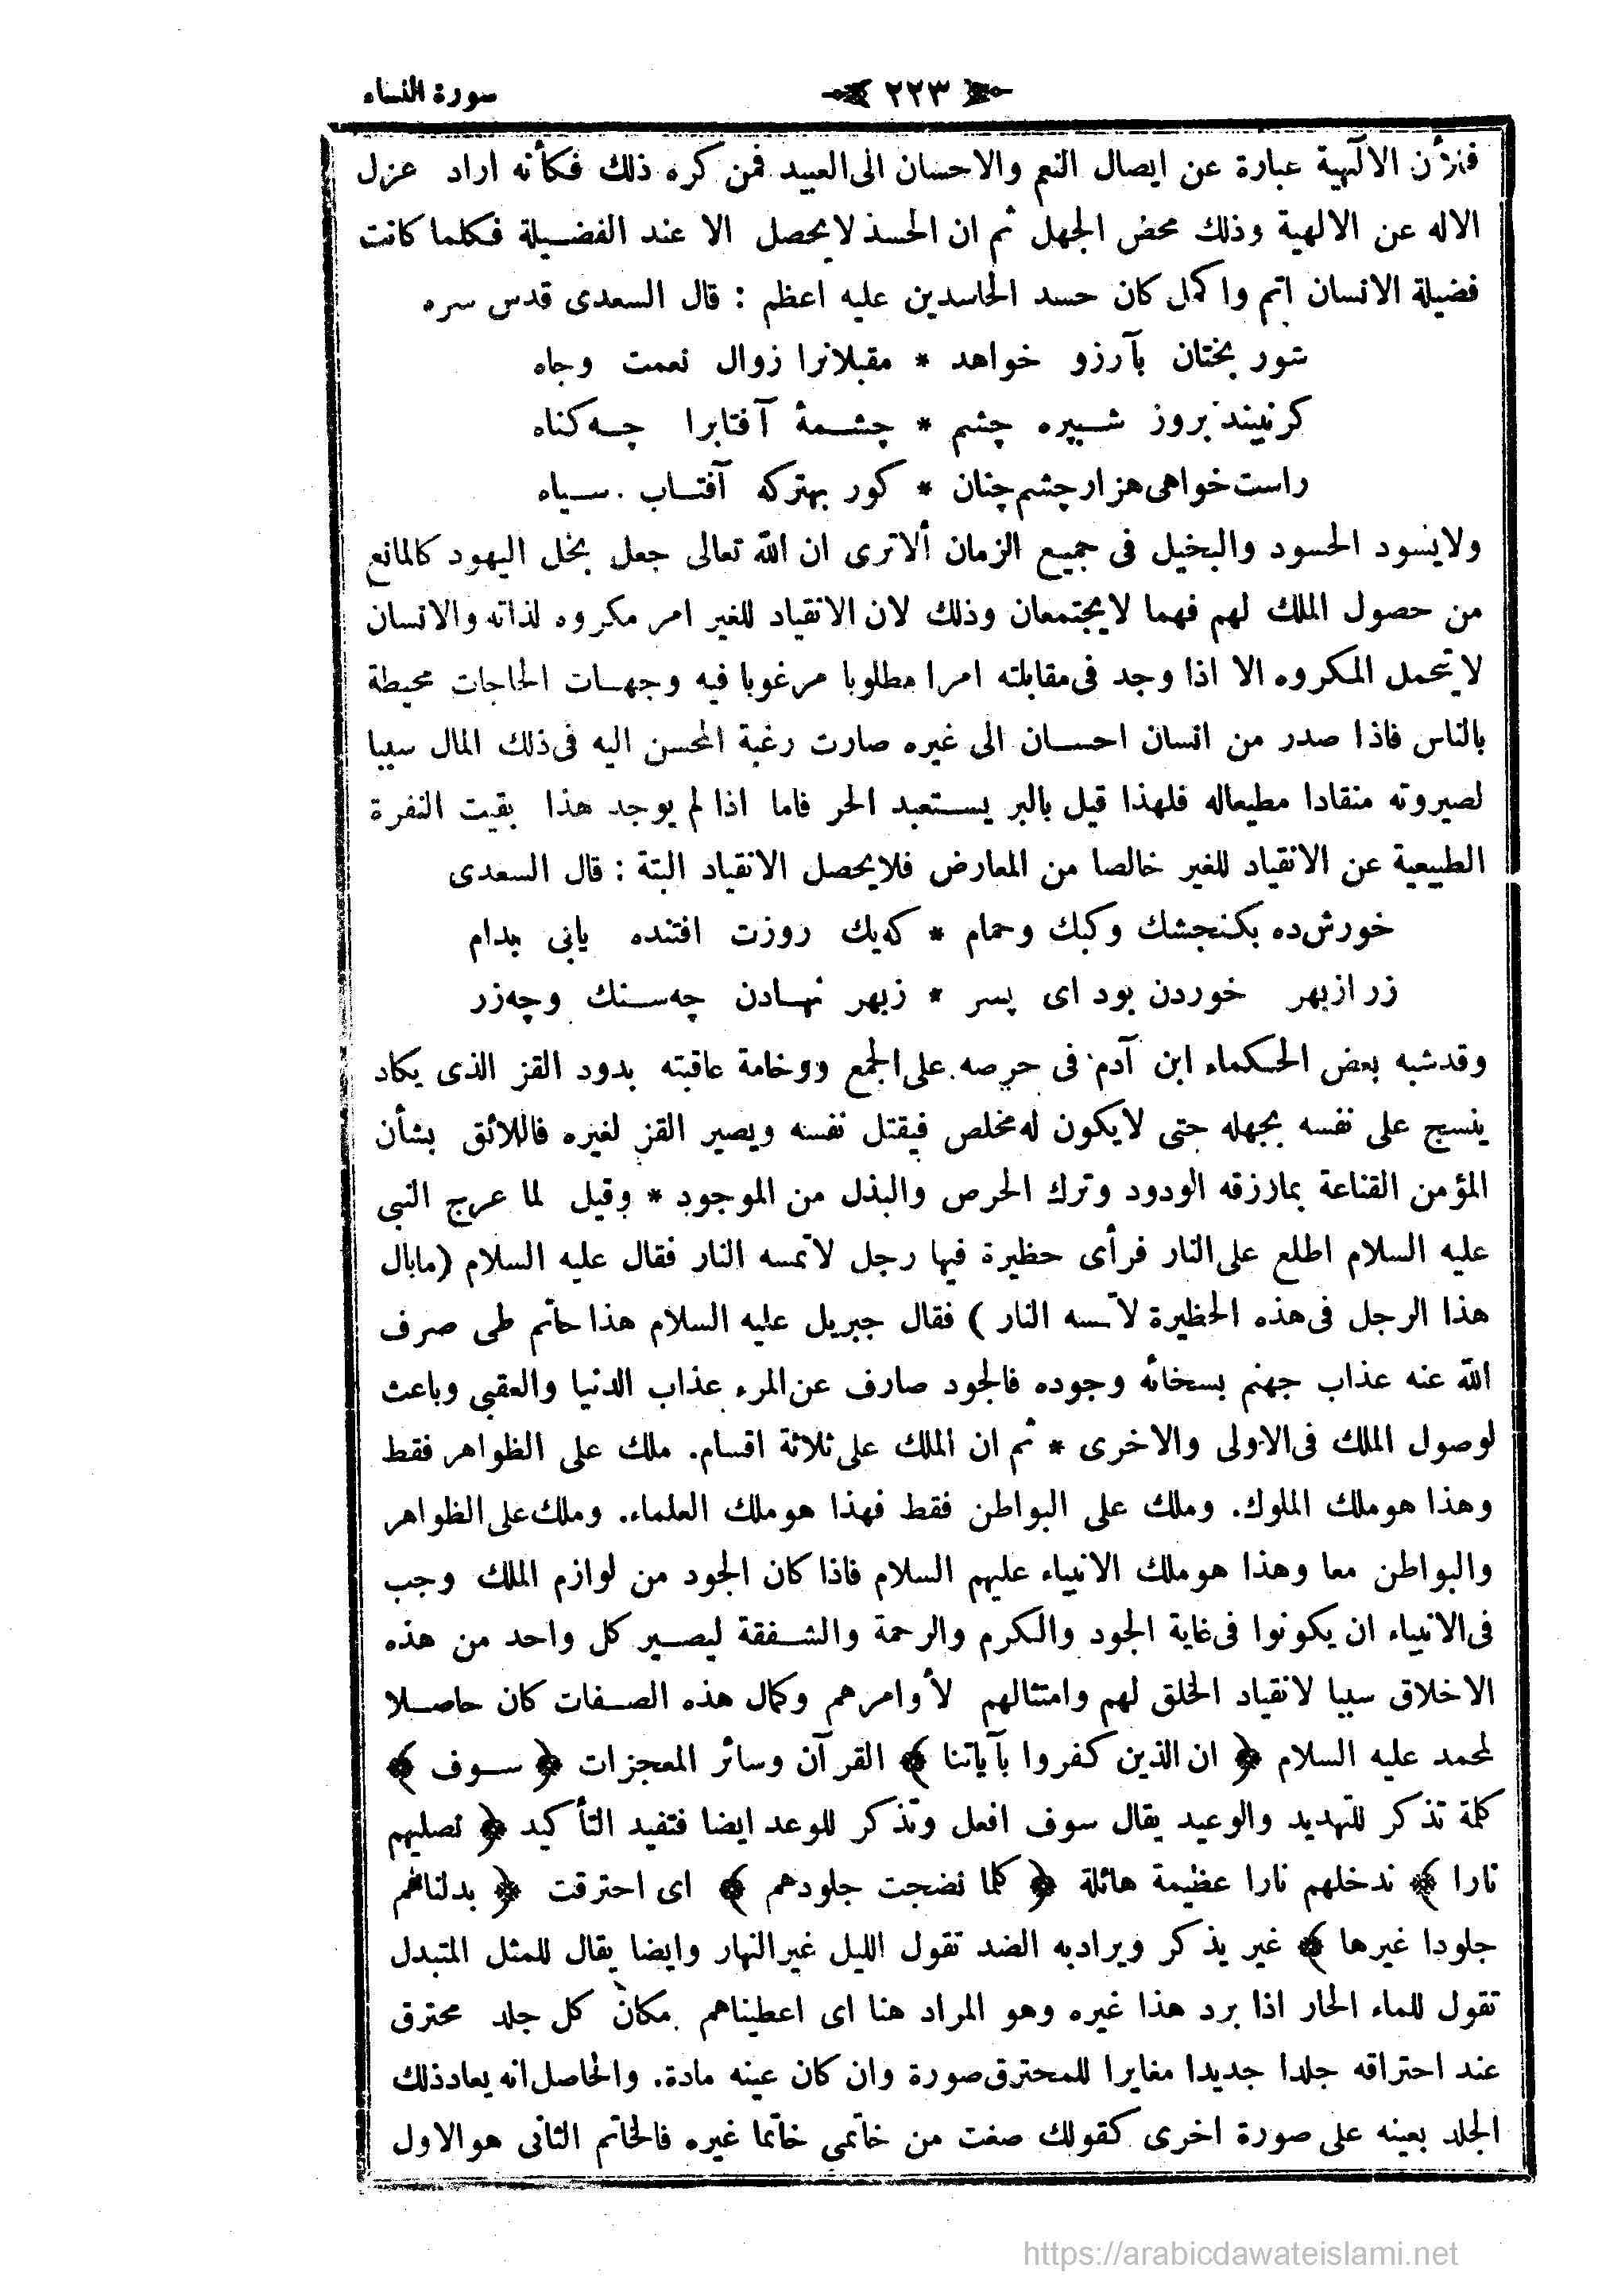 سورة النساء
٢٢٣
فشأن الالهية عبارة عن ايصال النعم والاحسان الى العبيد فمن كره ذلك فكأنه اراد عزل
الاله عن الالهية وذلك محض الجهل ثم ان الحسد لايحصل الا عند الفضيلة فكلما كانت
فضيلة الانسان اتم واكمل كان حسد الحاسدين عليه اعظم : قال السعدى قدس سره
شور بختان بآرزو خواهد * مقبلانرا زوال نعمت وجاه
كرنبيند بروز شبپره چشم * چشمۀ آفتابرا چه كناه
راست خواهى هزار چشم چنان * كور بهتر كه آفتاب سياه
ولايسود الحسود والبخيل فى جميع الزمان ألاترى ان الله تعالى جعل بخل اليهود كالمانع
من حصول الملك لهم فهما لايجتمعان وذلك لان الانقياد للغير امر مكروه لذاته والانسان
لايتحمل المكروه الا اذا وجد فى مقابلته امرا مطلوبا مرغوبا فيه وجهات الحاجات محيطة
بالناس فاذا صدر من انسان احسان الى غيره صارت رغبة المحسن اليه فى ذلك المال سببا
لصيروته منقادا مطيعاله فلهذا قيل بالبر يستعبد الحر فاما اذا لم يوجد هذا بقيت النفرة
الطبيعية عن الانقياد للغير خالصا من المعارض فلايحصل الانقياد البتة : قال السعدى
خورش ده بكنجشك وكبك وحمام * كه يك روزت افتنده يابى بدام
زر از بهر خوردن بود اى پسر * زبهر نهادن چه سنك وچه زر
وقدشبه بعض الحكماء ابن آدم فى حرصه على الجمع ووخامة عاقبته بدود القز الذى يكاد
ينسج على نفسه بجهله حتى لايكون له مخلص فيقتل نفسه ويصير القز لغيره فاللائق بشأن
المؤمن القناعة بمارزقه الودود وترك الحرص والبذل من الموجود * وقيل لما عرج النبى
عليه السلام اطلع على النار فرأى حظيرة فيها رجل لاتمسه النار فقال عليه السلام (مابال
هذا الرجل فى هذه الحظيرة لاتمسه النار) فقال جبريل عليه السلام هذا حاتم طى صرف
الله عنه عذاب جهنم بسخائه وجوده فالجود صارف عن المرء عذاب الدنيا والعقبى وباعث
لوصول الملك فى الاولى والاخرى * ثم ان الملك على ثلاثة اقسام. ملك على الظواهر فقط
وهذا هو ملك الملوك. وملك على البواطن فقط فهذا هو ملك العلماء. وملك على الظواهر
والبواطن معا وهذا هو ملك الانبياء عليهم السلام فاذا كان الجود من لوازم الملك وجب
فى الانبياء ان يكونوا فى غاية الجود والكرم والرحمة والشفقة ليصير كل واحد من هذه
الاخلاق سببا لانقياد الخلق لهم وامتثالهم لأوامرهم وكمال هذه الصفات كان حاصلا
لمحمد عليه السلام ﴿ ان الذين كفروا بآياتنا ﴾ القرآن وسائر المعجزات ﴿ سوف ﴾
كلمة تذكر للتهديد والوعيد يقال سوف افعل وتذكر للوعد ايضا فتفيد التأكيد ﴿ نصليهم
نارا ﴾ ندخلهم نارا عظيمة هائلة ﴿ كلما نضجت جلودهم ﴾ اى احترقت ﴿ بدلناهم
جلودا غيرها ﴾ غير يذكر ويرادبه الضد تقول الليل غير النهار وايضا يقال للمثل المتبدل
تقول للماء الحار اذا برد هذا غيره وهو المراد هنا اى اعطيناهم مكان كل جلد محترق
عند احتراقه جلدا جديدا مغايرا للمحترق صورة وان كان عينه مادة. والحاصل انه يعاد ذلك
الجلد بعينه على صورة اخرى كقولك صغت من خاتمى خاتما غيره فالخاتم الثانى هو الاول
https://arabicdawateislami.net